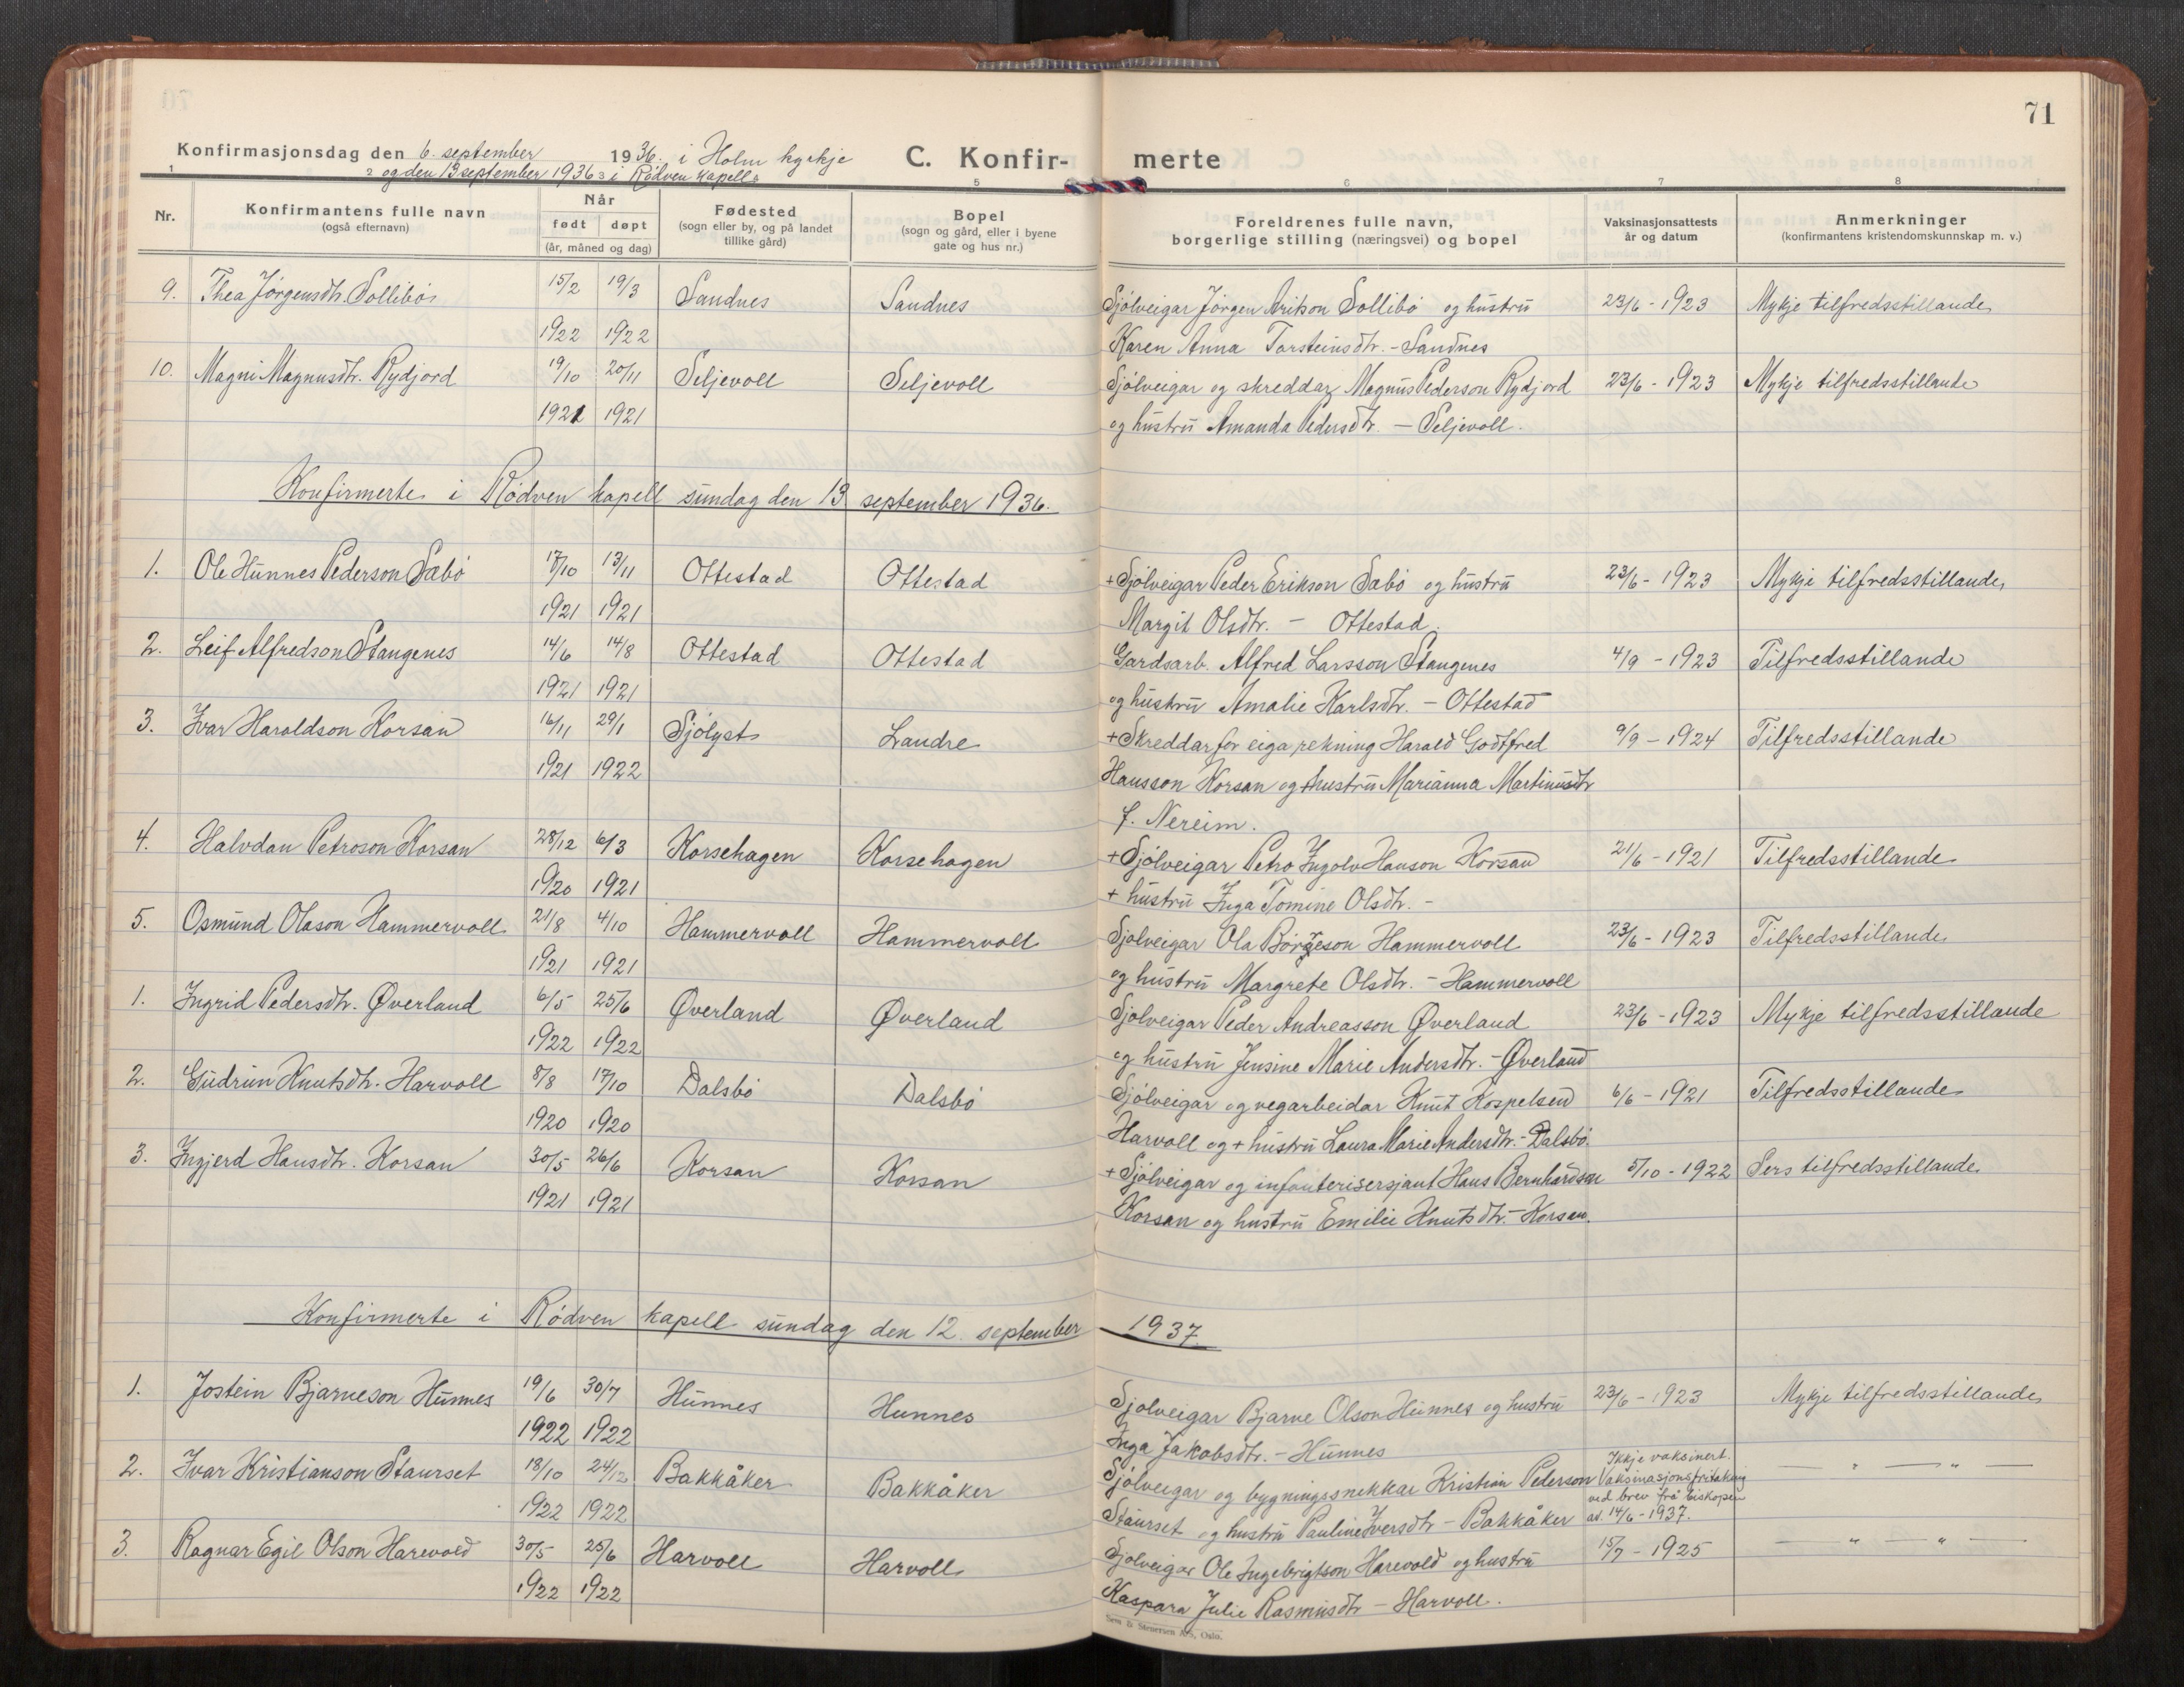 71
Konfirmasjonsdag den 6. september 1936. i Holm kyrkje
og den 13 september 1936 i Rødven kapell.
C. Konfir- merte
1 2 3 4 5 6 7 8
Nr.
Konfirmantens fulle navn
(også efternavn)
Når
født døpt
(år, måned og dag)
Fødested
(sogn eller by, og på landet
tillike gård)
Bopel
(sogn og gård, eller i byene
gate og hus nr.)
Foreldrenes fulle navn,
borgerlige stilling (næringsvei) og bopel
Vaksinasjonsattests
år og datum
Anmerkninger
(konfirmantens kristendomskunnskap m. v.)
9. Thea Jørgensdtr. Sollibø 15/2 19/3 Sandnes Sandnes Sjølveigar Jørgen Arikson Sollibø og hustru 23/6 - 1923 Mykje tilfredsstillande
1922 1922 Karen Anna Torsteinsdtr. - Sandnes
10. Magni Magnusdtr. Rydjord 19/10 20/11 Seljevoll Seljevoll Sjølveigar og skreddar Magnus Pederson Rydjord 23/6 - 1923 Mykje tilfredsstillande
1921 1921 og hustru Amanda Pedersdtr. - Seljevoll.
Konfirmerte i Rødven kapell sundag den 13 september 1936.
1. Ole Hunnes Pederson Sæbø 17/10 13/11 Ottestad Ottestad + Sjølveigar Peder Erikson Sæbø og hustru 23/6 - 1923 Mykje tilfredsstillande
1921 1921 Margit Olsdtr. - Ottestad.
2. Leif Alfredson Stangenes 14/6 14/8 Ottestad Ottestad Gardsarb. Alfred Larsson Stangenes 4/9 - 1923 Tilfredsstillande
1921 1921 og hustru Amalie Karlsdtr. - Ottestad
3. Ivar Haraldson Korsan 16/11 29/1 Sjølyst Landre + Skreddar for eiga rekning Harald Godtfred 9/9 - 1924 Tilfredsstillande
1921 1922 Hansson Korsan og + hustru Marianna Martinusdtr
f. Nereim.
4. Halvdan Petroson Korsan 28/12 6/3 Korsehagen Korsehagen + Sjølveigar Petro Ingolv Hanson Korsan 21/6 - 1921 Tilfredsstillande
1920 1921 + hustru Inga Tomine Olsdtr. -
5. Osmund Olason Hammervoll 21/8 4/10 Hammervoll Hammervoll Sjølveigar Ola Børgeson Hammervoll 23/6 - 1923 Tilfredsstillande
1921 1921 og hustru Margrete Olsdtr. - Hammervoll
1. Ingrid Pedersdtr. Øverland 6/5 25/6 Øverland Øverland Sjølveigar Peder Andreasson Øverland 23/6 - 1923 Mykje tilfredsstillande
1922 1922 og hustru Jensine Marie Andersdtr. - Øverland
2. Gudrun Knutsdtr. Harvoll 8/8 17/10 Dalsbø Dalsbø Sjølveigar og vegarbeidar Knut Kospelsen 6/6 - 1921 Tilfredsstillande
1920 1920 Harvoll og + hustru Laura Marie Andersdtr. - Dalsbø
3. Ingjerd Hansdtr. Korsan 30/5 26/6 Korsan Korsan + Sjølveigar og infanterisersjant Hans Bernhardsen 5/10 - 1922 Sers tilfredsstillande
1921 1921 Korsan og hustru Emilie Knutsdtr. - Korsan.
Konfirmerte i Rødven kapell sundag den 12. september 1937
1. Jostein Bjarneson Hunnes 19/6 30/7 Hunnes Hunnes Sjølveigar Bjarne Olson Hunnes og hustru 23/6 - 1923 Mykje tilfredsstillande
1922 1922 Inga Jakobsdtr. - Hunnes
2. Ivar Kristianson Staurset 18/10 24/12 Bakkåker Bakkåker Sjølveigar og bygningssnekkar Kristian Pederson Ikkje vaksinert. — " — " —
Vaksinasjonsfritaking
ved brev frå biskopen
1922 1922 Staurset og hustru Pauline Iversdtr - Bakkåker av 14/6 - 1937.
3. Ragnar Egil Olson Harevold 30/5 25/6 Harvoll Harvoll Sjølveigar Ole Ingebrigtson Harevold og hustru 15/7 - 1925 — " — " —
1922 1922 Kaspara Julie Rasmusdtr - Harvoll.
Sem & Stenersen A/S, Oslo.